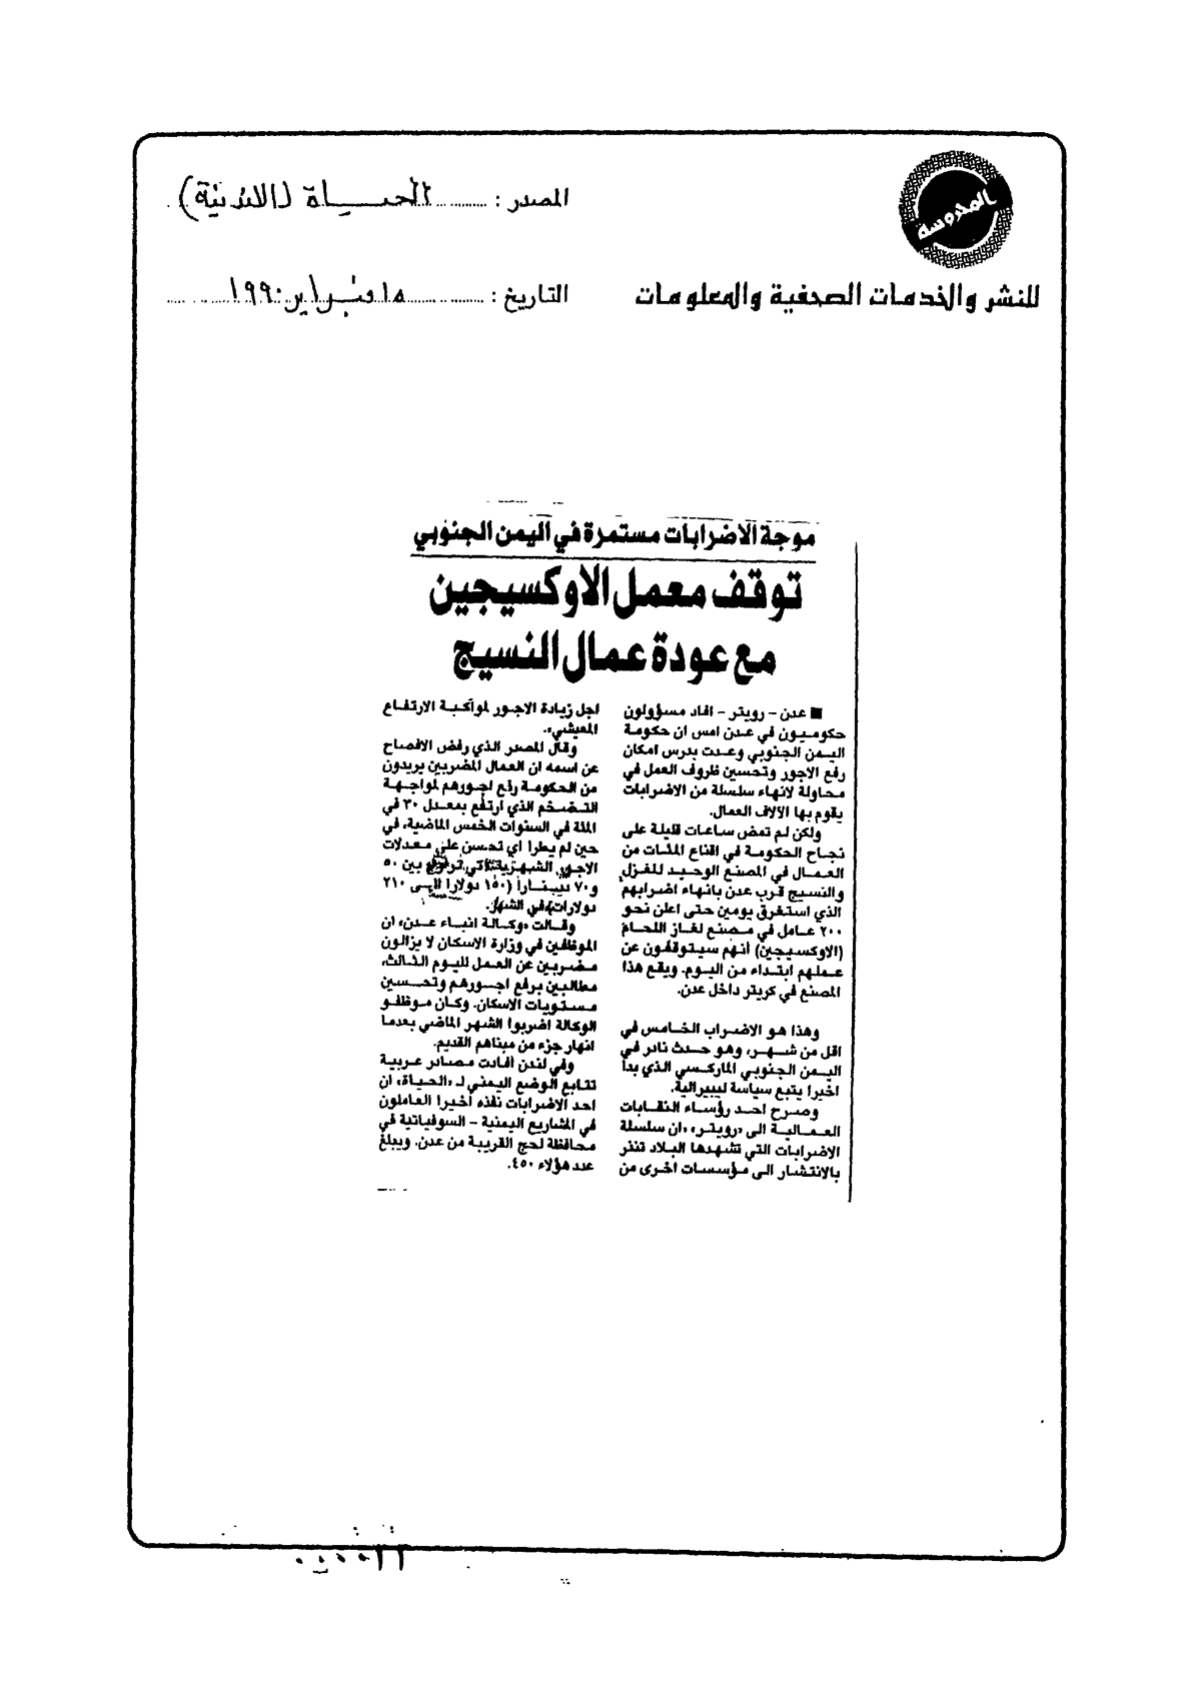 المحروسة
للنشر والخدمات الصحفية والمعلومات
المصدر : الحياة
التاريخ : ١٥ فبراير ١٩٩٠
موجة الاضرابات مستمرة في اليمن الجنوبي
توقف معمل الاوكسيجين
مع عودة عمال النسيج
■ عدن - رويتر - افاد مسؤولون
حكوميون في عدن امس ان حكومة
اليمن الجنوبي وعدت بدرس امكان
رفع الاجور وتحسين ظروف العمل في
محاولة لانهاء سلسلة من الاضرابات
يقوم بها الآلاف العمال.
ولكن لم تمض ساعات قليلة على
نجاح الحكومة في اقناع المئات من
العمال في المصنع الوحيد للغزل
والنسيج قرب عدن بانهاء اضرابهم
الذي استغرق يومين حتى اعلن نحو
٢٠٠ عامل في مصنع لغاز اللحام
(الاوكسيجين) أنهم سيتوقفون عن
عملهم ابتداء من اليوم. ويقع هذا
المصنع في كريتر داخل عدن.
وهذا هو الاضراب الخامس في
اقل من شهر، وهو حدث نادر في
اليمن الجنوبي الماركسي الذي بدأ
اخيرا يتبع سياسة ليبيرالية.
وصرح احد رؤساء النقابات
العمالية الى «رويتر» «ان سلسلة
الاضرابات التي تشهدها البلاد تنذر
بالانتشار الى مؤسسات اخرى من
اجل زيادة الاجور لمواكبة الارتفاع
المعيشي».
وقال المصدر الذي رفض الافصاح
عن اسمه ان العمال المضربين يريدون
من الحكومة رفع اجورهم لمواجهة
التضخم الذي ارتفع بمعدل ٣٠ في
المئة في السنوات الخمس الماضية، في
حين لم يطرا اي تحسن على معدلات
الاجور الشهرية التي تراوح بين ٥٠
و٧٠ ديناراً (١٥٠ دولارا الى ٢١٠
دولارات) في الشهر.
وقالت «وكالة انباء عدن» ان
الموظفين في وزارة الاسكان لا يزالون
مضربين عن العمل لليوم الثالث،
مطالبين برفع اجورهم وتحسين
مستويات الاسكان. وكان موظفو
الوكالة اضربوا الشهر الماضي بعدما
انهار جزء من مبناهم القديم.
وفي لندن أفادت مصادر عربية
تتابع الوضع اليمني لـ «الحياة» ان
احد الاضرابات نفذه اخيرا العاملون
في المشاريع اليمنية - السوفياتية في
محافظة لحج القريبة من عدن. ويبلغ
عدد هؤلاء ٤٥٠.